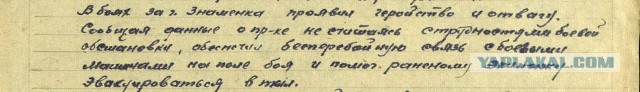 В боях за г. Знаменка проявил геройство и отвагу.
Сообщая данные о пр-ке не считаясь с трудностями боевой
обстановки, обеспечил бесперебойную связь с боевыми
машинами на поле боя и помог раненому
эвакуироваться в тыл.
YAPLAKAL.COM